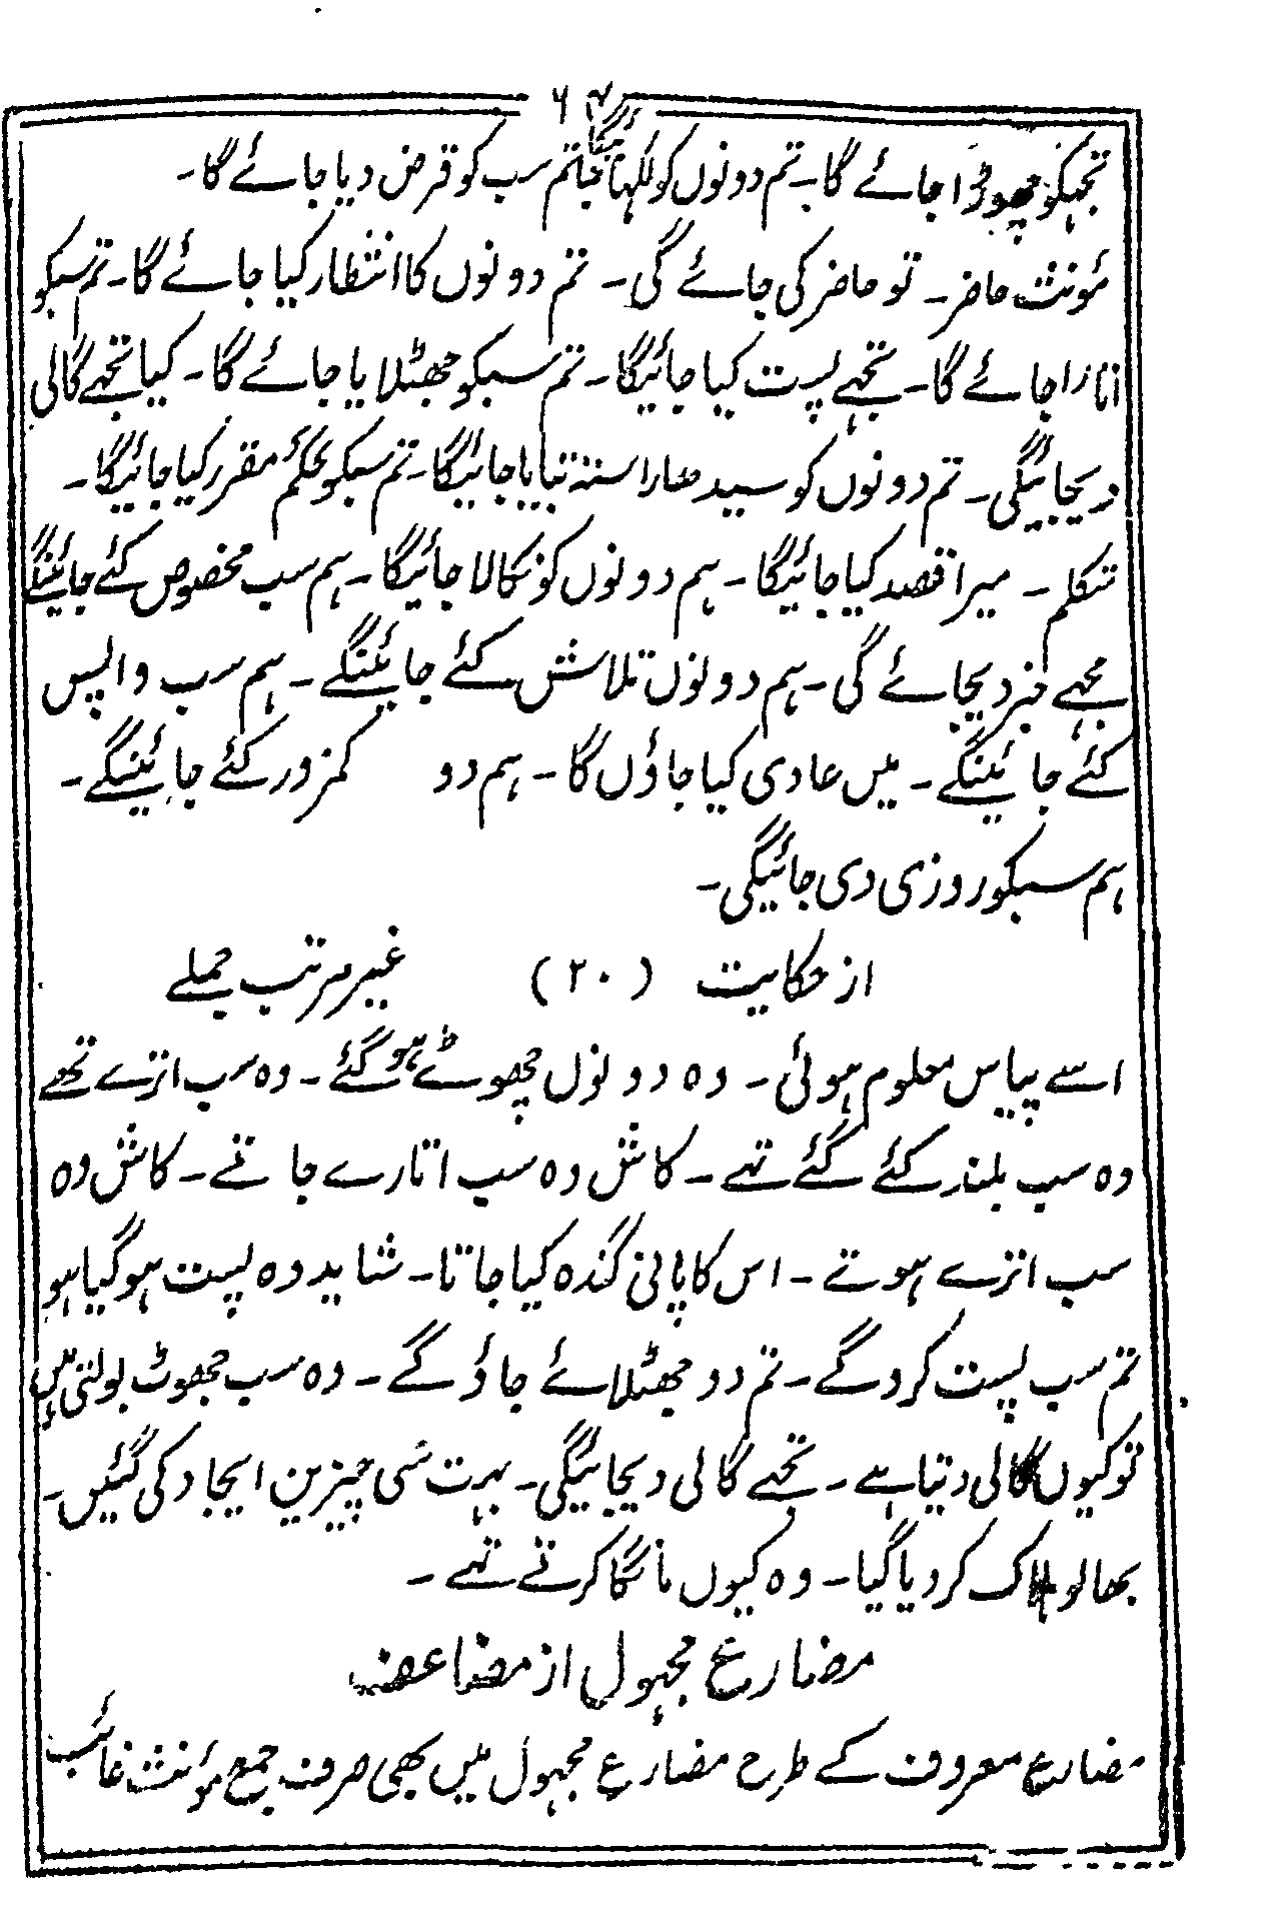 ۶۴
تجہکو چھوڑا جائے گا۔ تم دونوں کو لکہا جائیگا تم سب کو قرض دیا جائے گا۔
مؤنث حاضر۔ تو حاضر کی جائے گی۔ تم دونوں کا انتظار کیا جائے گا۔ تم سبکو
اتارا جائے گا۔ تجہے پست کیا جائیگا۔ تم سبکو جھٹلایا جائے گا۔ کیا تجہے گالی
دیجائیگی۔ تم دونوں کو سیدھا راستہ بتایا جائیگا۔ تم سبکو حکم مقرر کیا جائیگا۔
متکلم۔ میرا قصد کیا جائیگا۔ ہم دونوں کو نکالا جائیگا۔ ہم سب مخصوص کئے جائینگے
مجہے خبر دیجائے گی۔ ہم دونوں تلاش کئے جائینگے۔ ہم سب واپس
کئے جائینگے۔ میں عادی کیا جاؤں گا۔ ہم دو کمزور کئے جائینگے۔
ہم سبکو روزی دی جائیگی۔
از حکایت (۲۰) غیر مرتب جملے
اسے پیاس معلوم ہوئی۔ وہ دونوں چھوٹے ہو گئے۔ وہ سب اترے تھے
وہ سب بلند کئے گئے تہے۔ کاش وہ سب اتارے جاتے۔ کاش وہ
سب اترے ہوتے۔ اس کا پانی گندہ کیا جاتا۔ شاید وہ پست ہو گیا ہو
تم سب پست کروگے۔ تم دو جھٹلائے جاؤ گے۔ وہ سب جھوٹ بولتی ہیں
تو کیوں گالی دیتا ہے۔ تجہے گالی دیجائیگی۔ بہت سی چیزین ایجاد کی گئیں۔
بھالو ہلاک کر دیا گیا۔ وہ کیوں مانگا کرتے تہے۔
مضارع مجہول از مضاعف
مضارع معروف کے طرح مضارع مجہول میں بھی صرف جمع مؤنث غائب